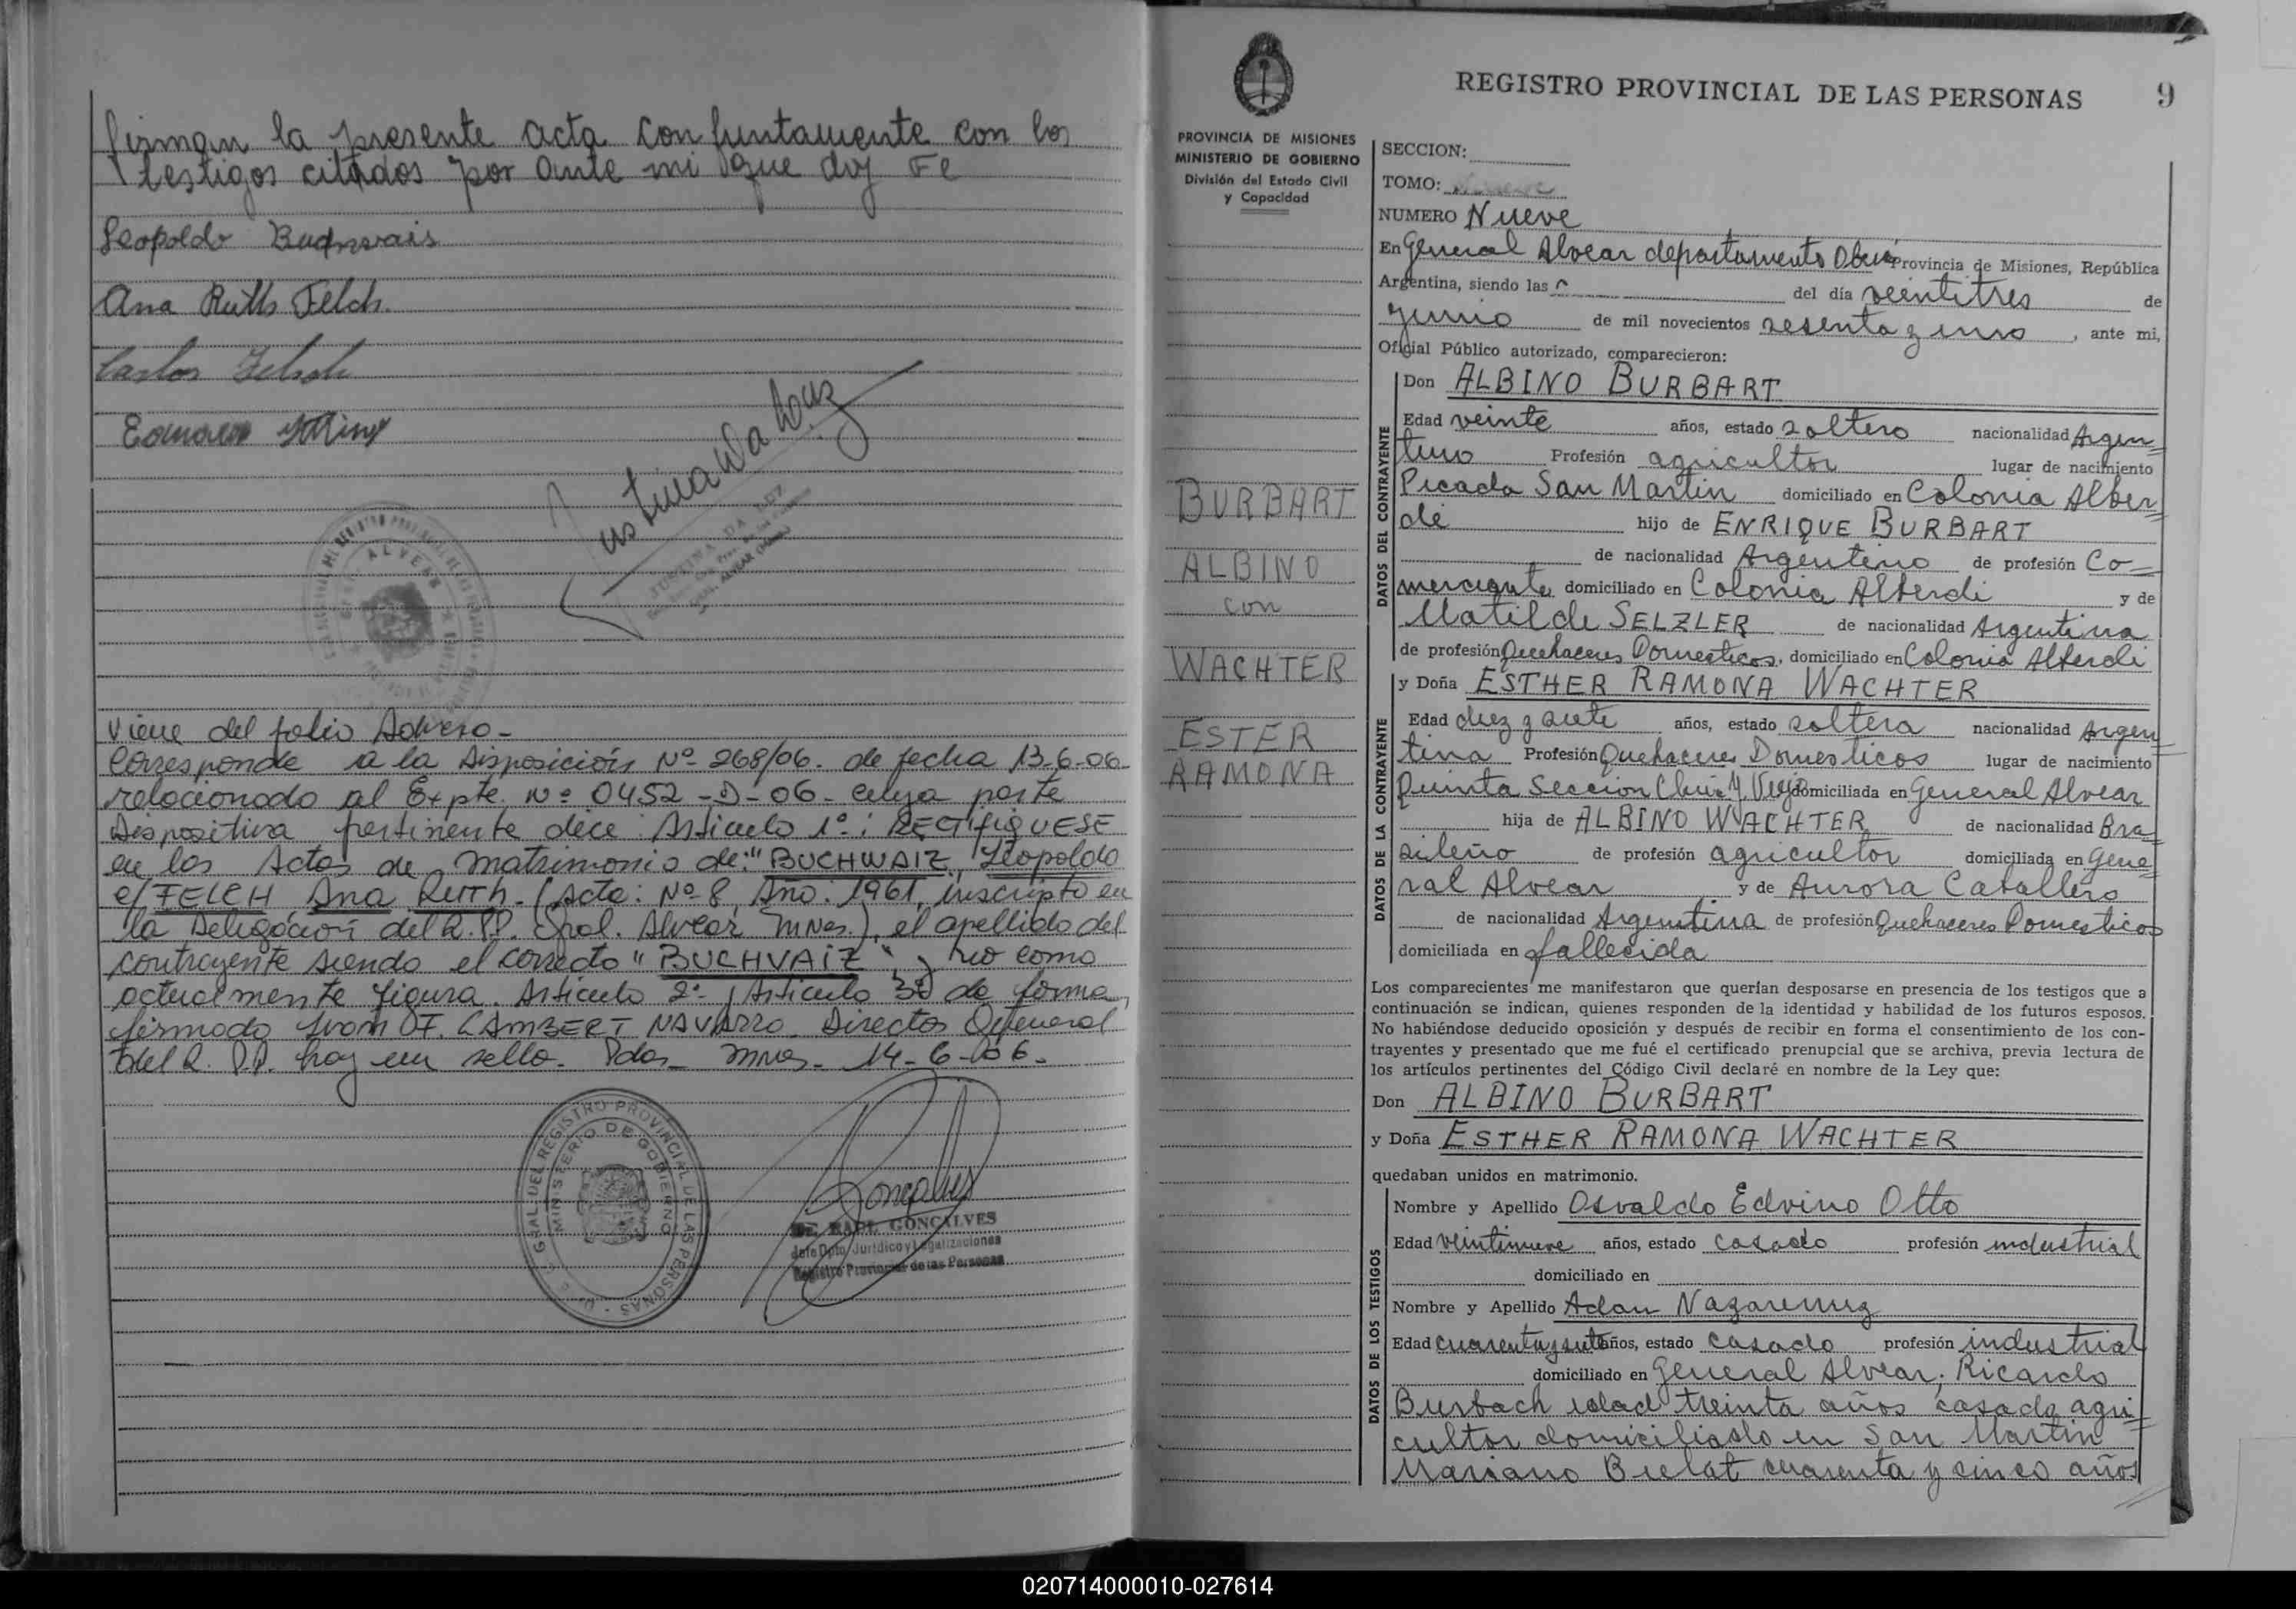 firman la presente acta conjuntamente con los
testigos citados por ante mi que doy Fe
Leopoldo
Ana Ruth Felch.
Carlos Felch
Viene del folio Adverso-
Corresponde a la Disposición Nº 268/06. de fecha 13-6-06.
relacionado al Expte. Nº 0452-D-06- cuya parte
Dispositiva pertinente dice: Articulo 1º: RECTIFIQUESE
en los Actos de Matrimonio de: "BUCHWAIZ, Leopoldo
c/ FELCH Ana RUTH. (Acta: Nº 8, Año: 1961, inscripto en
la Delegación del R.PP. Gral. Alvear Mnes.), el apellido del
contrayente siendo el correcto "BUCHVAIZ", y no como
actualmente figura. Articulo 2º- Articulo 3º de forma,
firmado LAMBERT NAVARRO. Director General
del R. P.P. hay un sello. Pdas- Mnes- 14-6-06-
DIR. GRAL. DEL REGISTRO PROVINCIAL DE LAS PERSONAS
MINISTERIO DE GOBIERNO
RAUL GONCALVES
Jefe Dpto. Jurídico y Legalizaciones
Registro Provincial de las Personas
REGISTRO PROVINCIAL DE LAS PERSONAS 9
PROVINCIA DE MISIONES
MINISTERIO DE GOBIERNO
División del Estado Civil
y Capacidad
BURBART
ALBINO
con
WACHTER
ESTER
RAMONA
SECCION:
TOMO:
NUMERO Nueve
En General Alvear departamento Oberá Provincia de Misiones, República
Argentina, siendo las del día veintitres de
Junio de mil novecientos sesenta y uno, ante mi,
Oficial Público autorizado, comparecieron:
DATOS DEL CONTRAYENTE
Don ALBINO BURBART
Edad veinte años, estado soltero nacionalidad Argen=
tino Profesión agricultor lugar de nacimiento
Picada San Martin domiciliado en Colonia Alber=
di hijo de ENRIQUE BURBART
de nacionalidad Argentino de profesión Co=
merciante domiciliado en Colonia Alberdi y de
Matilde SELZLER de nacionalidad Argentina
de profesión Quehaceres Domesticos, domiciliado en Colonia Alberdi
DATOS DE LA CONTRAYENTE
y Doña ESTHER RAMONA WACHTER
Edad diez y siete años, estado soltera nacionalidad Argen=
tina Profesión Quehaceres Domesticos lugar de nacimiento
Quinta Seccion domiciliada en General Alvear
hija de ALBINO WACHTER de nacionalidad Bra=
sileño de profesión agricultor domiciliada en Gene=
ral Alvear y de Aurora Caballero
de nacionalidad Argentina de profesión Quehaceres Domesticos
domiciliada en fallecida
Los comparecientes me manifestaron que querían desposarse en presencia de los testigos que a
continuación se indican, quienes responden de la identidad y habilidad de los futuros esposos.
No habiéndose deducido oposición y después de recibir en forma el consentimiento de los con-
trayentes y presentado que me fué el certificado prenupcial que se archiva, previa lectura de
los artículos pertinentes del Código Civil declaré en nombre de la Ley que:
Don ALBINO BURBART
y Doña ESTHER RAMONA WACHTER
quedaban unidos en matrimonio.
DATOS DE LOS TESTIGOS
Nombre y Apellido Osvaldo Edvino Otto
Edad veintinueve años, estado casado profesión industrial
domiciliado en
Nombre y Apellido Adan
Edad cuarenta y siete años, estado casado profesión industrial
domiciliado en General Alvear; Ricardo
Burbach edad treinta años casado agri=
cultor domiciliado en San Martin
Mariano cuarenta y cinco años
020714000010-027614